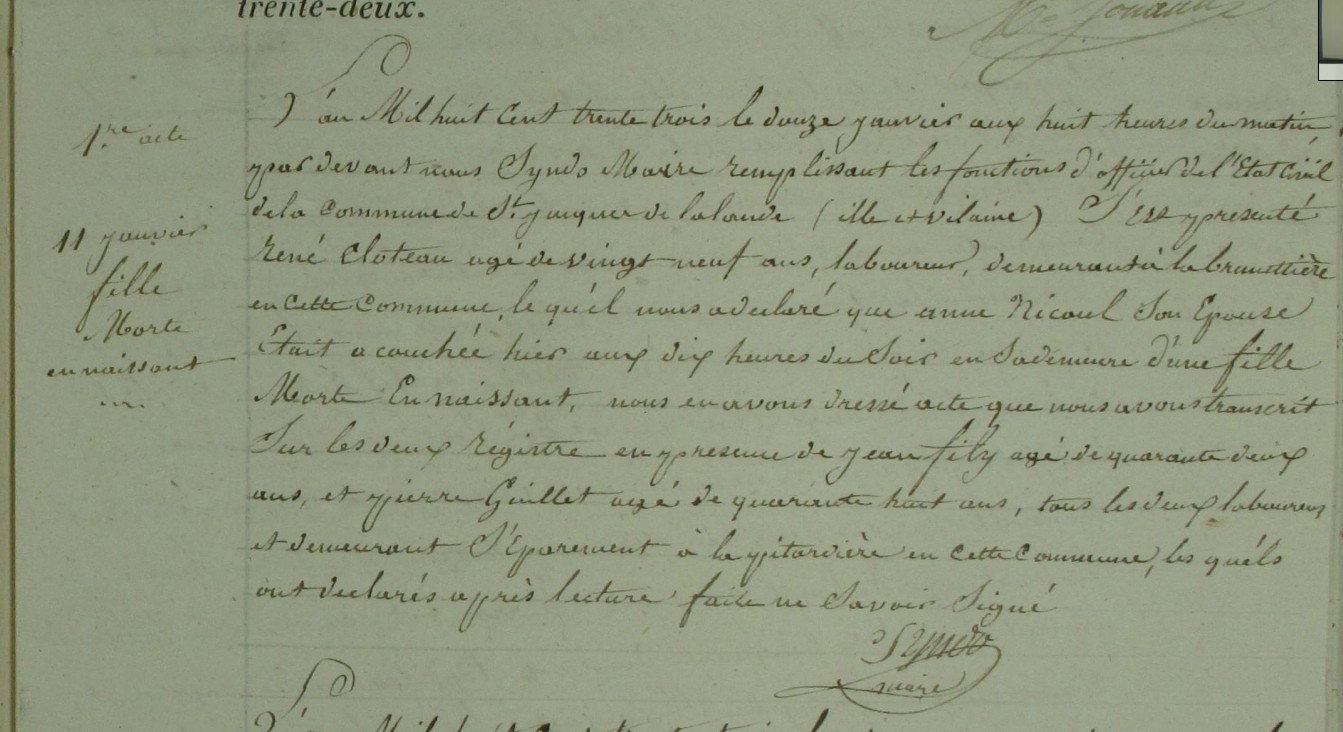 trente-deux.
1.re acte
11 janvier
fille
Morte
en naissant
L'an Mil huit Cent trente trois le douze janvier aux huit heures du matin,
par devant nous Synds Maire remplissant les fonctions d'officier de l'Etat Civil
de la Commune de St. jacques de lalande (ille et vilaine) S'est presenté
René Cloteau agé de vingt neuf ans, laboureur, demeurant à la brunettière
en cette Commune, le quél nous a declaré que anne Nicoul Son Epouse
Etait acouchée hier aux dix heures du Soir en Sa demeure d'une fille
Morte En naissant, nous en avons dressé acte que nous avons transcrit
Sur les deux régistre en presence de jean fily agé de quarante deux
ans, et pierre Guillet agé de quarante huit ans, tous les deux laboureurs
et demeurant S'Eparement à la pitardière en cette Commune, les quéls
ont declarés après lecture faite ne Savoir Signé
Synds
maire